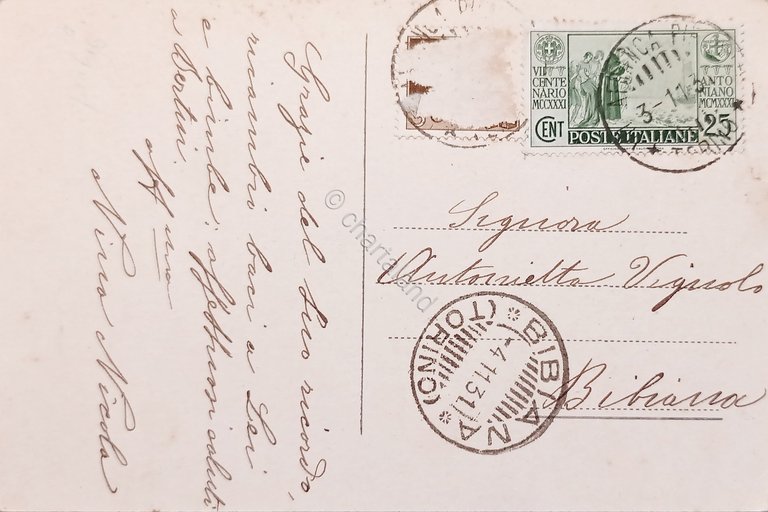 Grazie del Suo ricordo,
ricambi baci a Lei
e bimbe; affettuosi saluti
a Bertini.
Aff.
Nino Nicola
VII CENTENARIO
MCCXXXI
ANTONIANO
MCMXXXI
CENT 25
POSTE ITALIANE
3-11-31
TORINO
Signora
Antonietta Vignolo
Bibiana
BIBIANA
(TORINO)
4.11.31
© chartaland